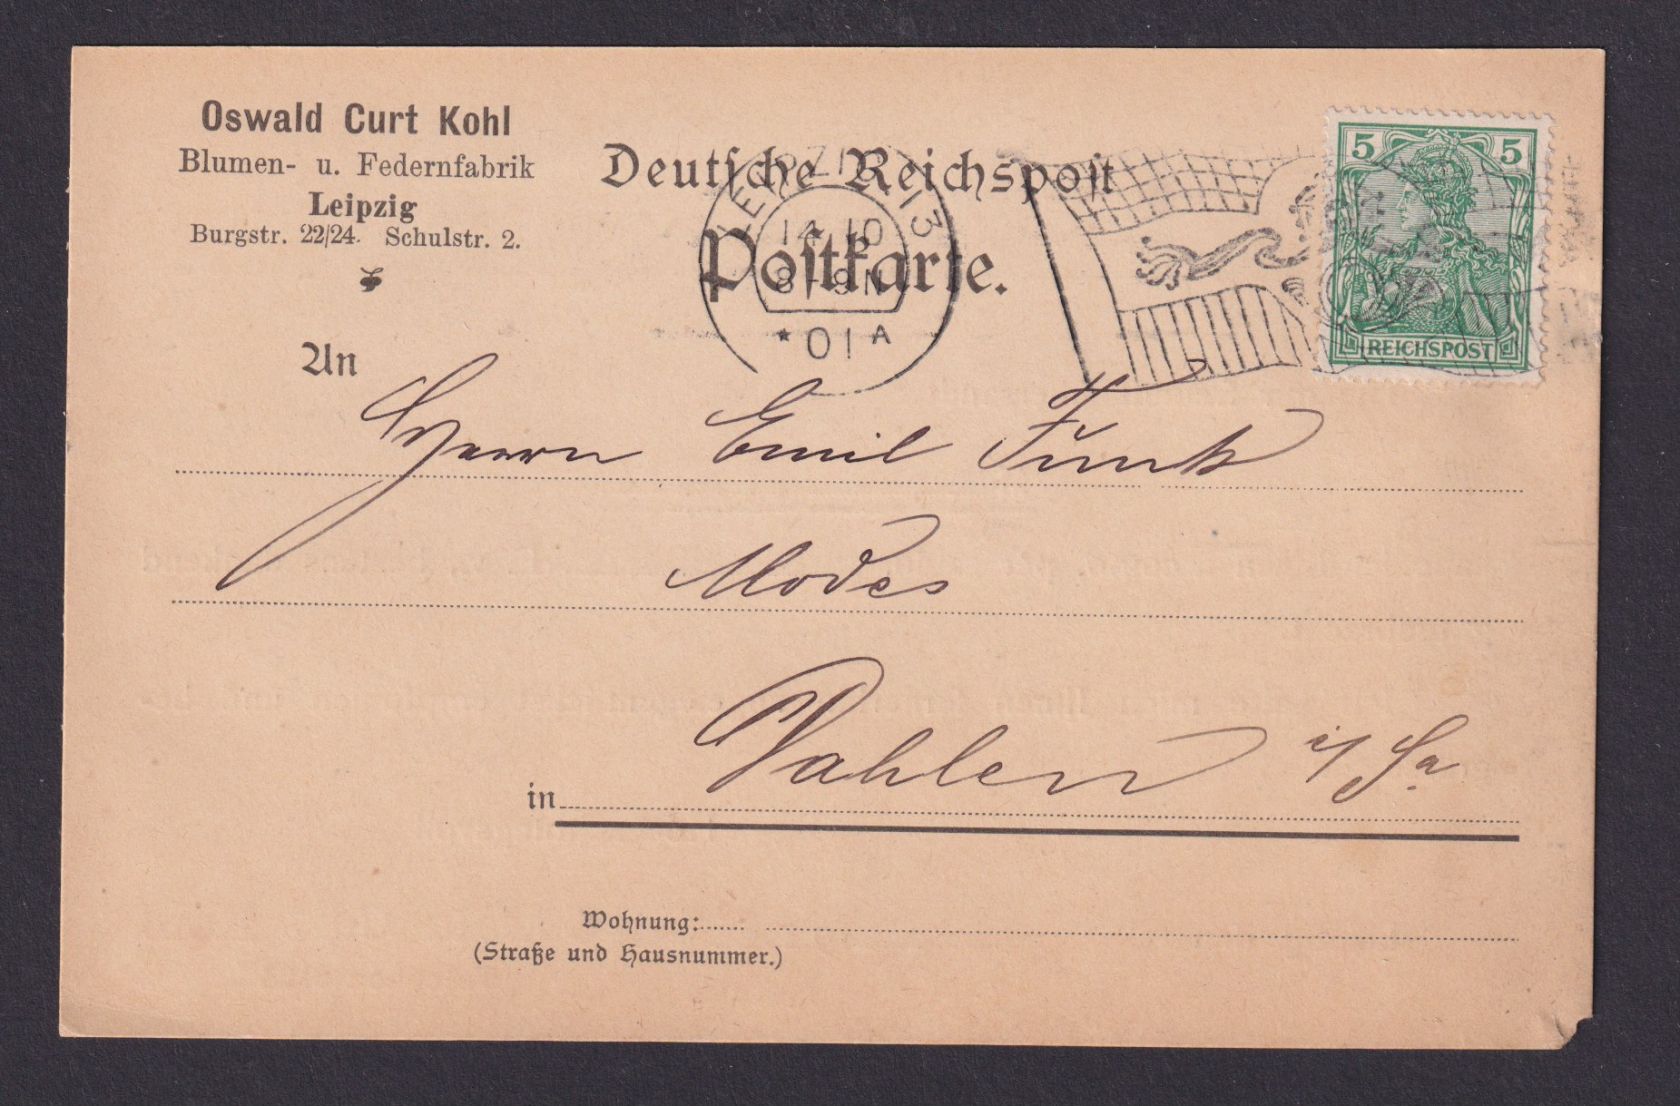 Oswald Curt Kohl
Blumen- u. Federnfabrik
Leipzig
Burgstr. 22/24. Schulstr. 2.
Deutſche Reichspoſt
Poſtkarte.
LEIPZIG 13
14 10
8-9N
*01 A
5 5
REICHSPOST
An
Herrn Emil Funk
Modes
in Dahlen i/Sa
Wohnung:
(Straße und Hausnummer.)